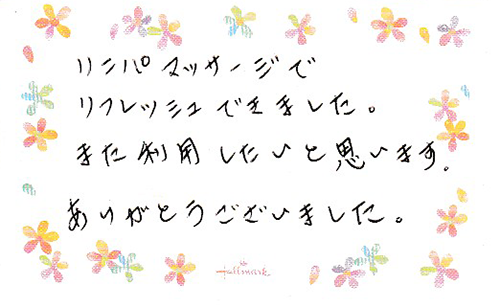 リンパマッサージで
リフレッシュできました。
また利用したいと思います。
ありがとうございました。
Hallmark